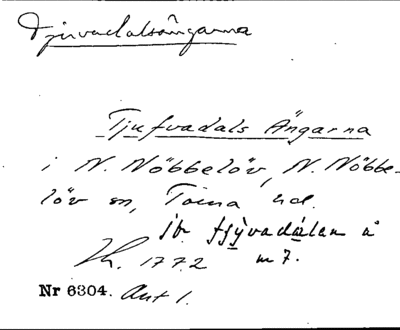 Tjuvadalsängarna
Tjufvadals Ängarna
i N. Nöbbelöv, N. Nöbbe-
löv sn, Torna hd.
jfr tjỳvadálen å
Lh. 1772 m7.
Nr 6304. Ant 1.